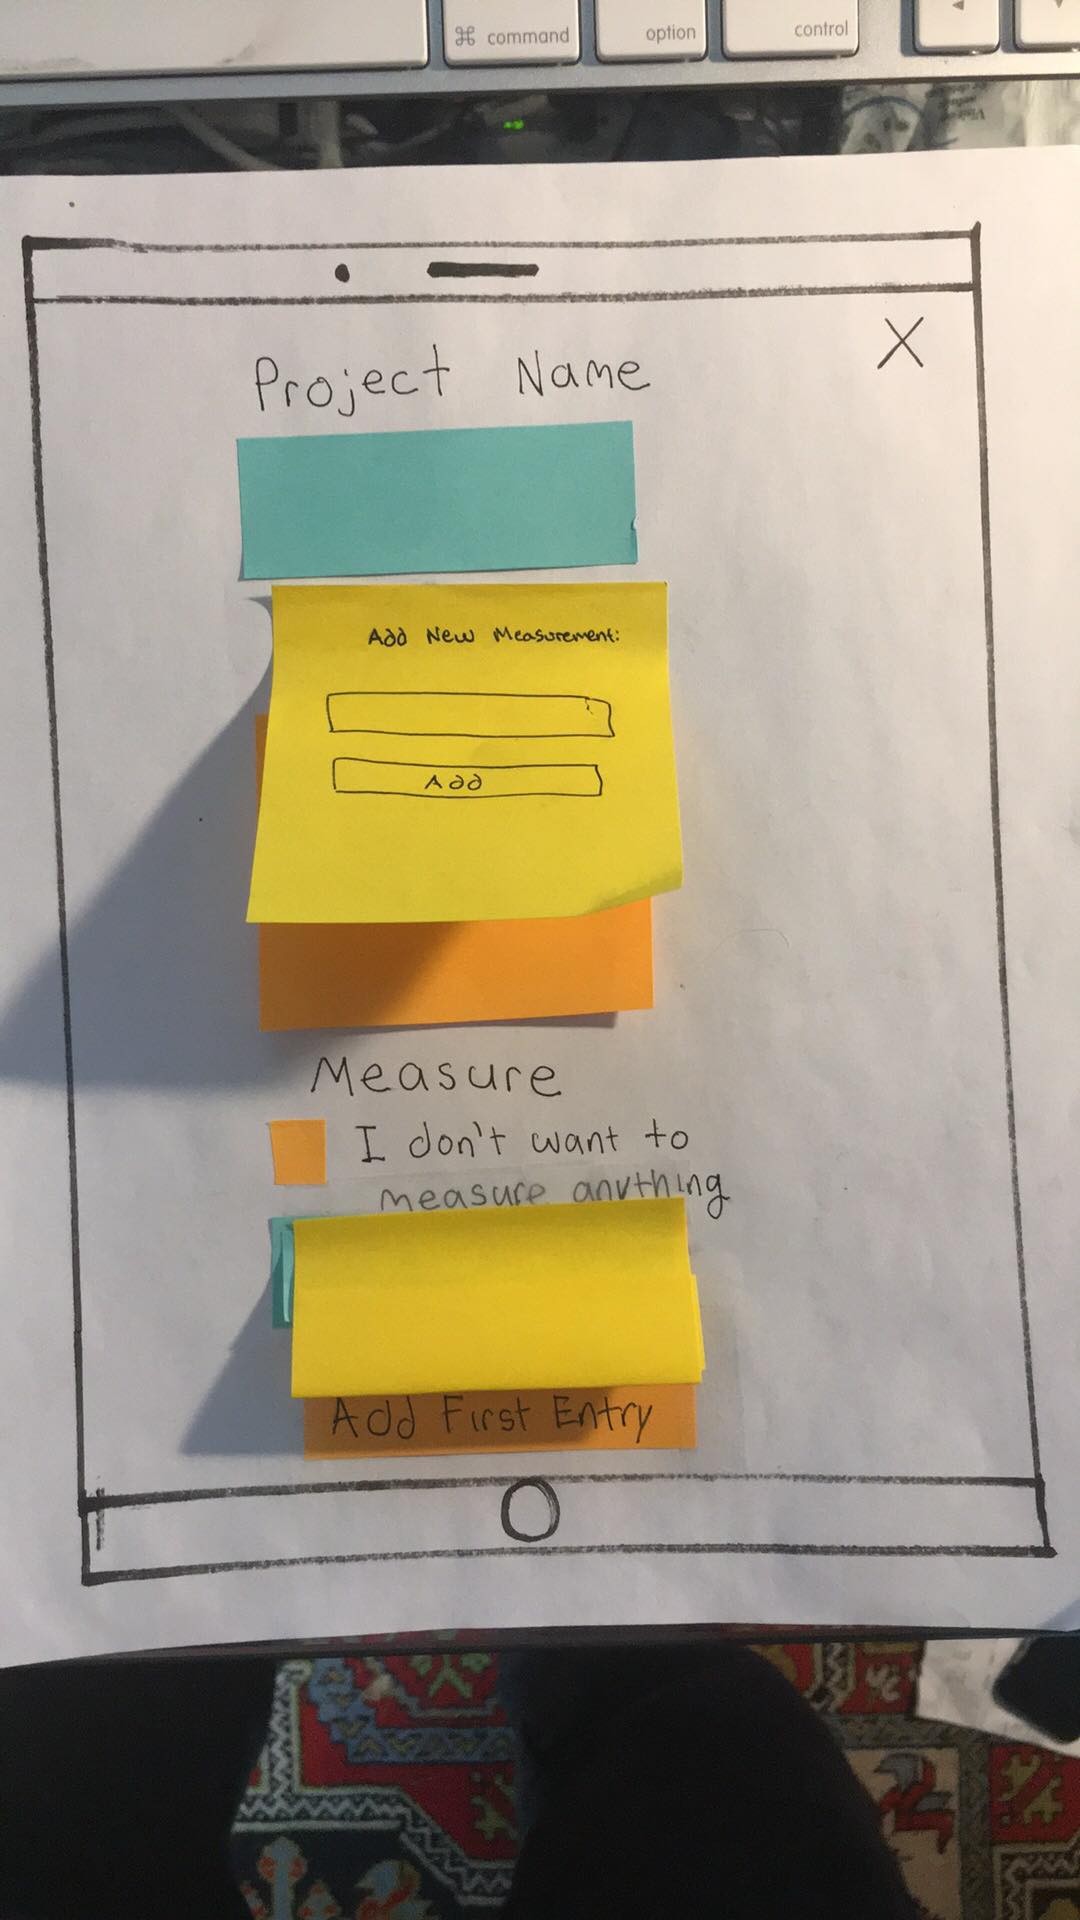 ⌘ command option control
Project Name
X
Add New Measurement:
Add
Measure
I don't want to
measure anything
Add First Entry